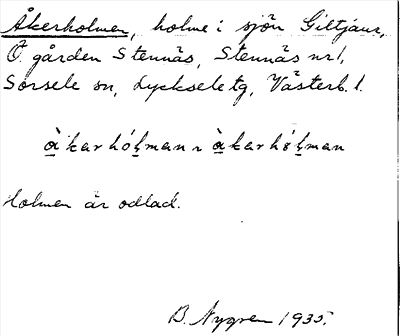 Åkerholmen, holme i sjön Giltjaur,
Ö gården Stennäs, Stennäs nr 1,
Sorsele sn, Lycksele tg, Västerb. l.
å̀kar hólman ~ å̀kar hólman
Holmen är odlad.
B. Nygren 1935.